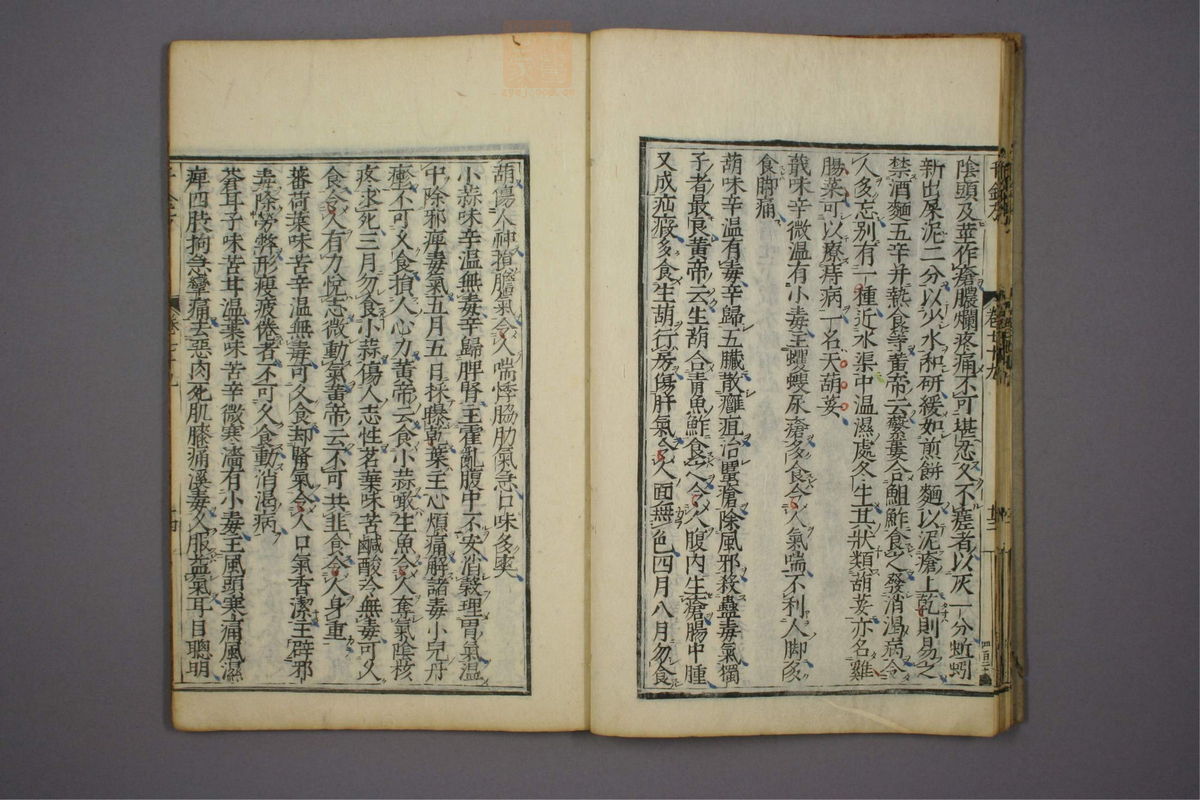 陰頭及莖作瘡膿爛疼痛不可堪忍久不瘥者以灰一分蚯蚓
新出屎泥二分以少水和研緩如煎餅麵以泥瘡上乾則易之
禁酒麵五辛并熱食等黃帝云蘩蔞合䱹鮓食之發消渴病令
人多忘別有一種近水渠中溫濕處冬生其狀類胡荽亦名雞
腸菜可以療痔病一名天胡荽
蕺味辛微溫有小毒主蠼螋尿瘡多食令人氣喘不利人脚多
食脚痛
葫味辛溫有毒辛歸五臟散癰疽治䘌瘡除風邪殺蠱毒氣獨
子者最良黃帝云生葫合青魚鮓食之令人腹內生瘡腸中腫
又成疝瘕多食生葫行房傷肝氣令人面無色四月八月勿食
葫傷人神損膽氣令人喘悸脇肋氣急口味多爽
小蒜味辛溫無毒辛歸脾腎主霍亂腹中不安消穀理胃氣溫
中除邪痺毒氣五月五日採曝乾葉主心煩痛解諸毒小兒丹
瘮不可久食損人心力黃帝云食小蒜噉生魚令人奪氣陰核
疼求死三月勿食小蒜傷人志性茗葉味苦鹹酸冷無毒可久
食令人有力悅志微動氣黃帝云不可共韭食令人身重
蕃荷葉味苦辛溫無毒可久食却腎氣令人口氣香潔主辟邪
毒除勞弊形瘦疲倦者不可久食動消渴病
蒼耳子味苦甘溫葉味苦辛微寒濇有小毒主風頭寒痛風濕
痺四肢拘急攣痛去惡肉死肌膝痛溪毒久服益氣耳目聰明